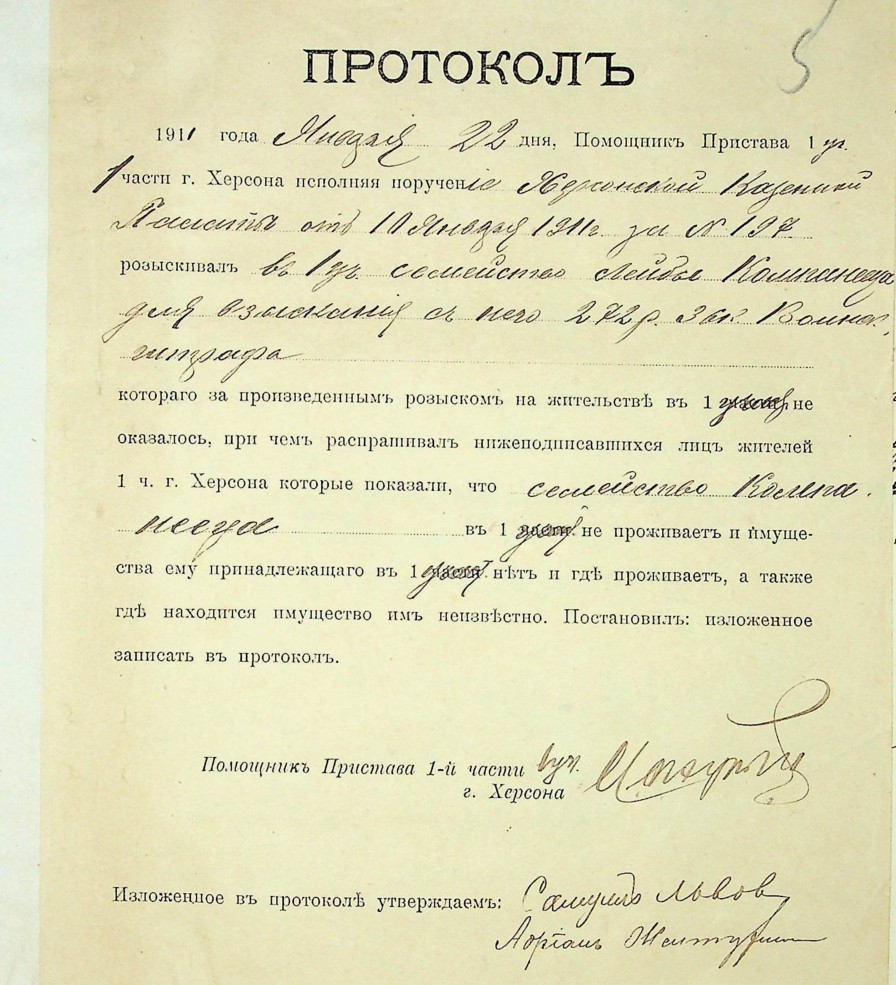 5
ПРОТОКОЛЪ
1911 года Января 22 дня, Помощникъ Пристава 1 уч.
1 части г. Херсона исполняя порученіе Херсонской Казенной
Палаты отъ 10 Января 1911 г. за № 197
розыскивалъ въ 1 уч. семейство Лейбы Компанейца
для взысканія съ него 272 р. 3 бк. Воинск.
штрафа
котораго за произведеннымъ розыскомъ на жительствѣ въ 1 не
оказалось, при чемъ распрашивалъ нижеподписавшихся лицъ жителей
1 ч. г. Херсона которые показали, что семейство Компа-
нейца въ 1 не проживаетъ и имуще-
ства ему принадлежащаго въ 1 нѣтъ и гдѣ проживаетъ, а также
гдѣ находится имущество имъ неизвѣстно. Постановилъ: изложенное
записать въ протоколъ.
Помощникъ Пристава 1-й части
г. Херсона
Изложенное въ протоколѣ утверждаемъ: Самуилъ Львовъ
Адріанъ